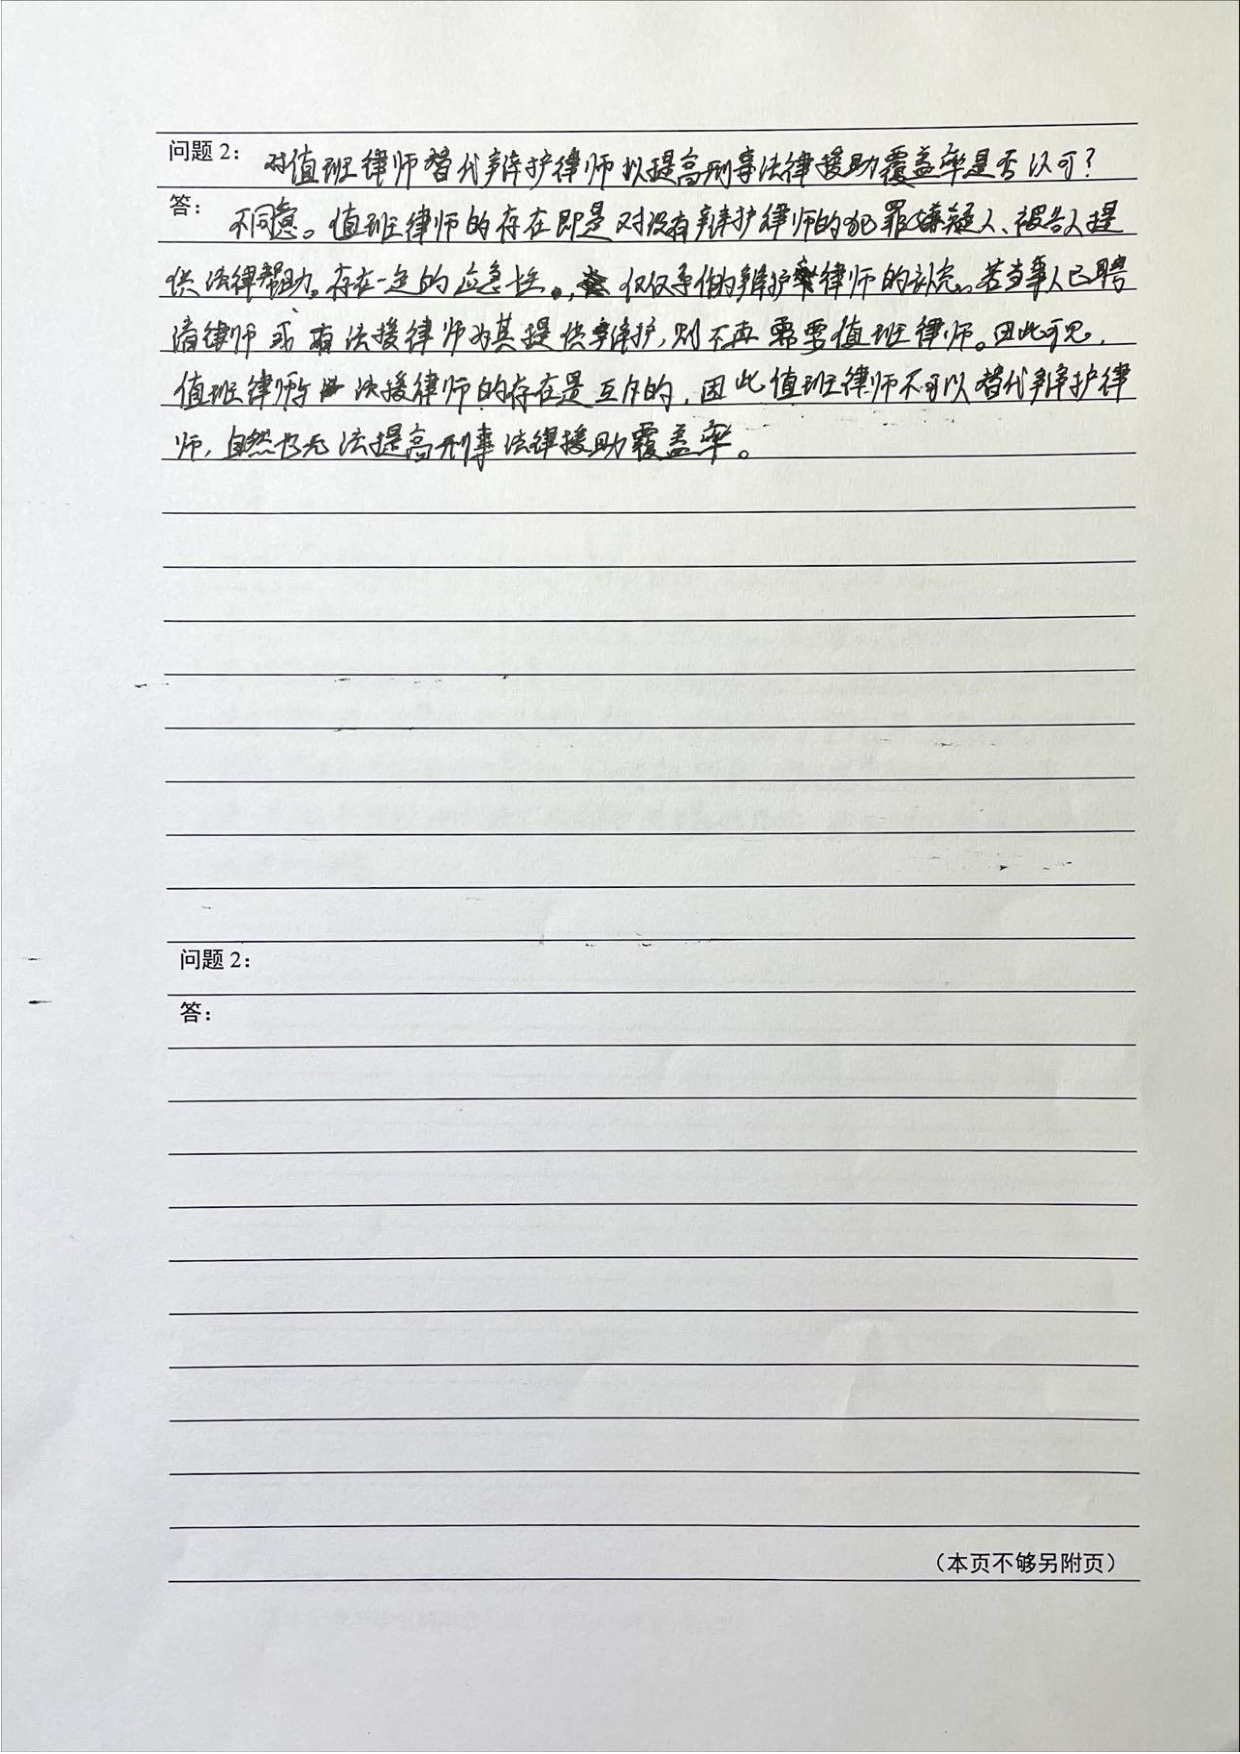 问题 2： 对值班律师替代辩护律师以提高刑事法律援助覆盖率是否认可？
答： 不同意。值班律师的存在即是对没有辩护律师的犯罪嫌疑人、被告人提
供法律帮助。存在一定的应急性。，仅仅是 辩护律师的补充。若当事人已聘
请律师或有法援律师为其提供辩护，则不再需要值班律师。因此可见，
值班律师与法援律师的存在是互斥的，因此值班律师不可以替代辩护律
师，自然也无法提高刑事法律援助覆盖率。
问题 2：
答：
（本页不够另附页）